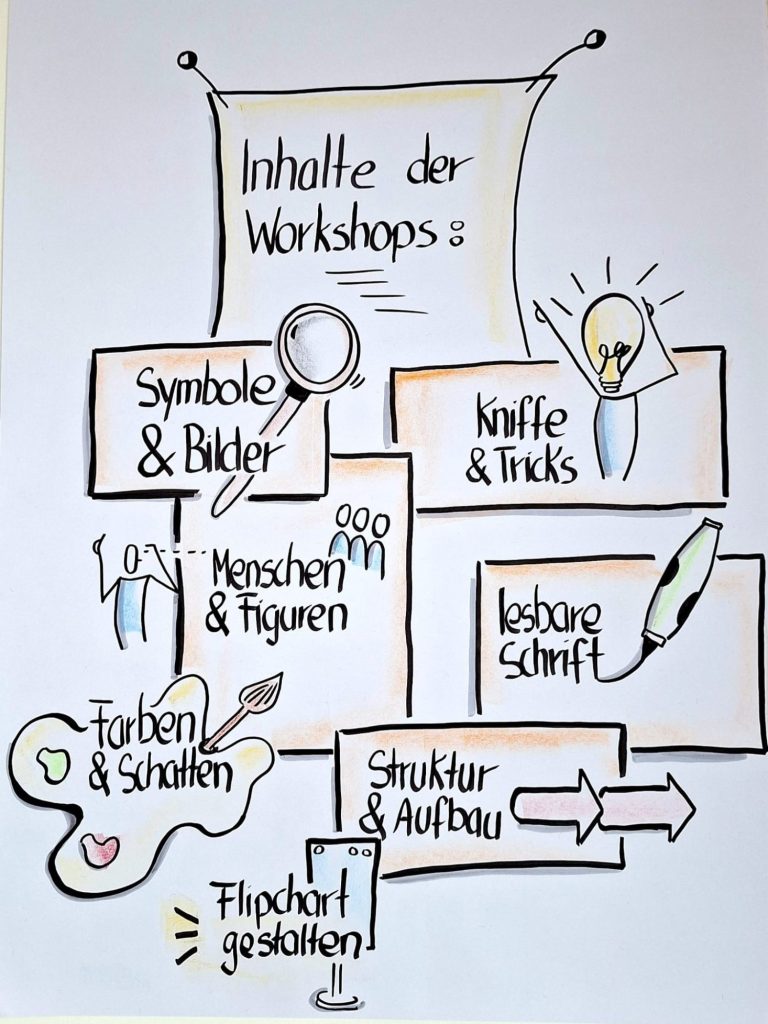 Inhalte der
Workshops:
Symbole
& Bilder
Kniffe
& Tricks
Menschen
& Figuren
lesbare
Schrift
Farben
& Schatten
Struktur
& Aufbau
Flipchart
gestalten